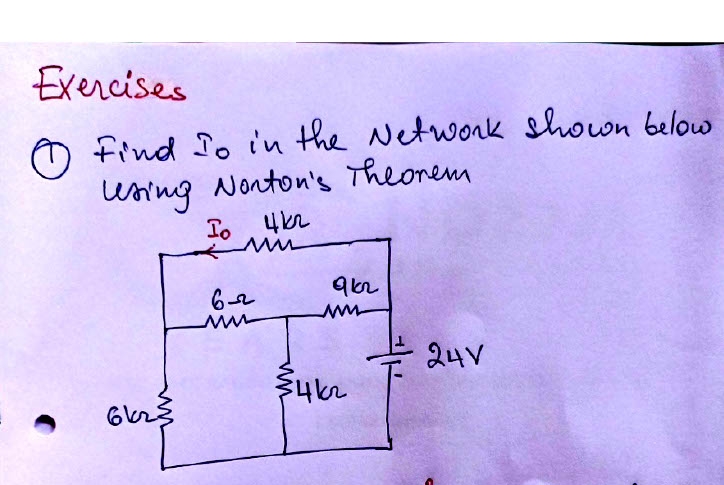 Exercises
① Find Io in the Network shown below
using Norton's Theorem
Io 4kΩ
6Ω 9kΩ
+ 24V
-
4kΩ
6kΩ